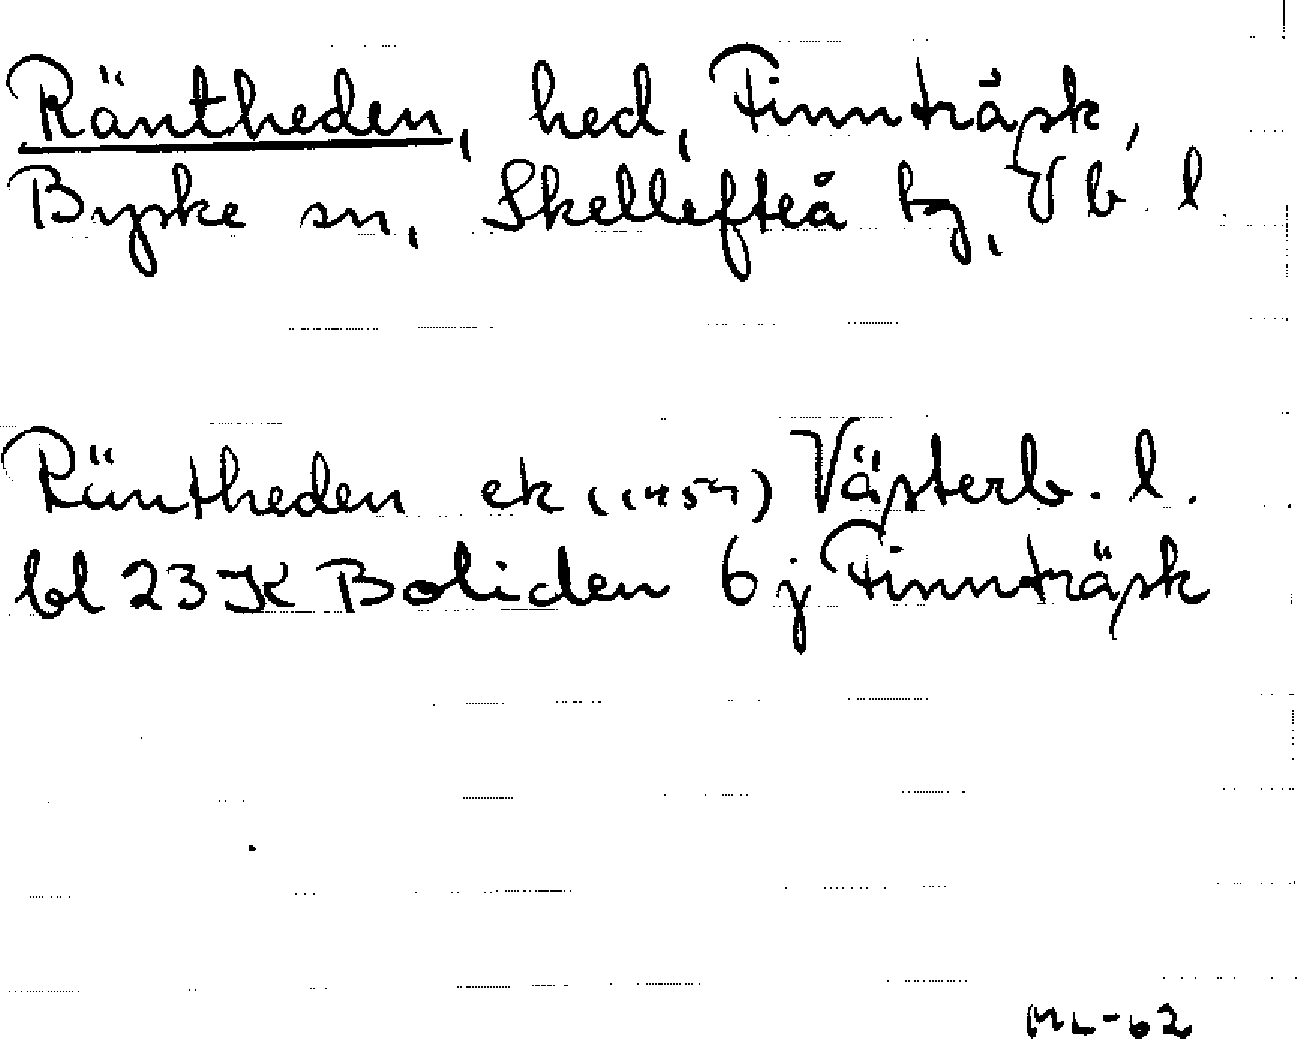 Räntheden, hed, Finnträsk,
Byske sn, Skellefteå tg, Vb. l.
Räntheden ek (1959) Västerb. l.
bl 23 K Boliden 6 j Finnträsk
ML-62